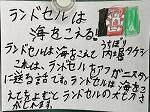 ランドセルは
海をこえる
ランドセルは海をこえて
うちぼり
内堀タケシ
これは、ランドセルをアフガニスタン
に送る話です。ランドセルは海をこ
えてをよむとランドセルの大せつさ
がわかります。